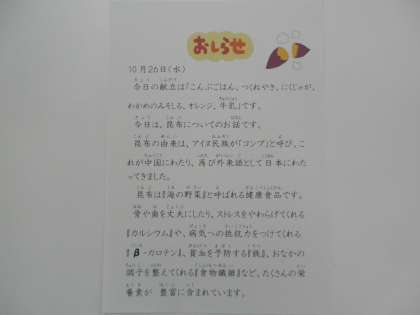 おしらせ
10月26日(水)
今日の献立は「こんぶごはん、つくねやき、にくじゃが、
わかめのみそしる、オレンジ、牛乳」です。
今日は、昆布についてのお話です。
昆布の由来は、アイヌ民族が「コンプ」と呼び、こ
れが中国にわたり、再び外来語として日本にわた
ってきました。
昆布は『海の野菜』と呼ばれる健康食品です。
骨や歯を丈夫にしたり、ストレスをやわらげてくれる
『カルシウム』や、病気への抵抗力をつけてくれる
『β-カロテン』、貧血を予防する『鉄』、おなかの
調子を整えてくれる『食物繊維』など、たくさんの栄
養素が 豊富に含まれています。